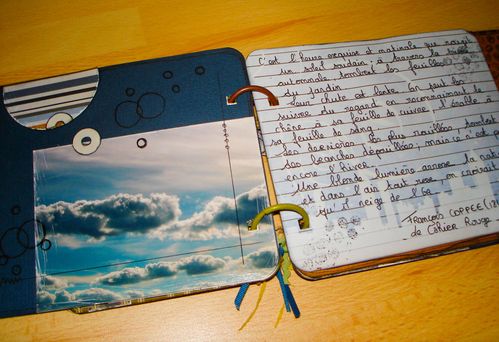 C'est l'heure exquise et matinale que rougit
un soleil soudain ; à travers la brume
automnale tombent les feuilles
du jardin.
Leur chute est lente. On peut les
suivre du regard en reconnaissant le
chêne à sa feuille de cuivre, l'érable à
sa feuille de sang.
Les dernières, les plus rouillées, tombent
des branches dépouillées ; mais ce n'est pas
encore l'hiver.
Une blonde lumière arrose la nature
et dans l'air tout rose, on croirait
qu'il neige de l'or.
François COPPÉE
de Cahier Rouge